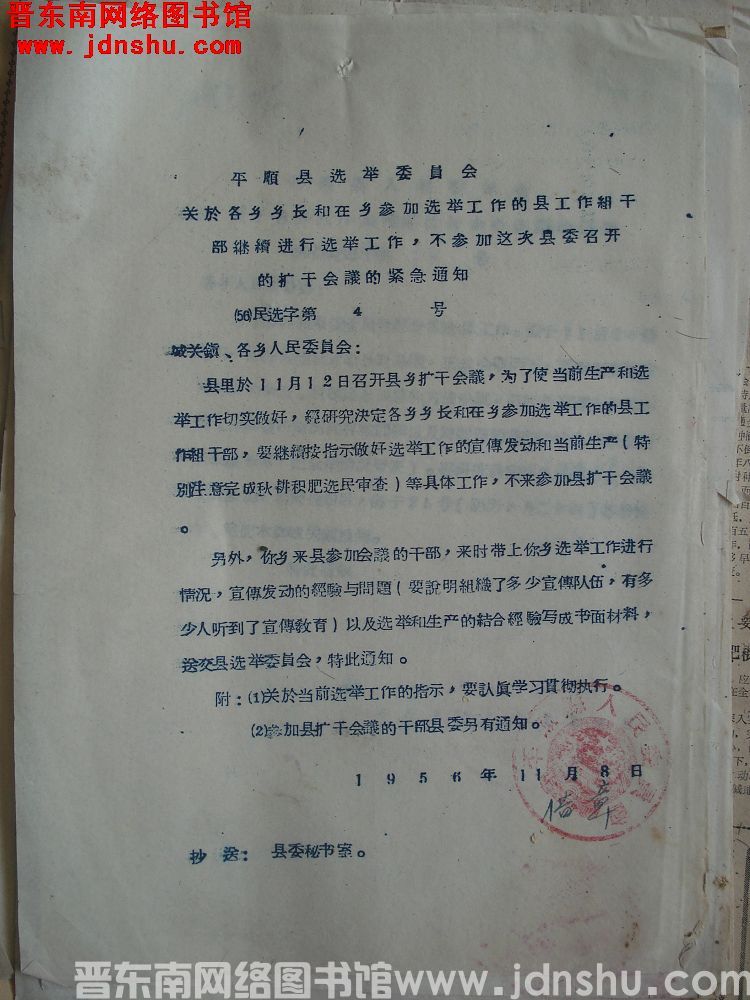 晋东南网络图书馆
www.jdnshu.com
平順县选举委員会
关於各乡乡长和在乡参加选举工作的县工作組干
部继續进行选举工作，不参加这次县委召开
的扩干会議的紧急通知
(56)民选字第 4 号
城关鎭、各乡人民委員会：
县里於11月12日召开县乡扩干会議，为了使当前生产和选
举工作切实做好，經研究决定各乡乡长和在乡参加选举工作的县工
作組干部，要继續按指示做好选举工作的宣傳发动和当前生产（特
别注意完成秋耕积肥选民审查）等具体工作，不来参加县扩干会議
。
另外，你乡来县参加会議的干部，来时带上你乡选举工作进行
情况，宣傳发动的經驗与問題（要說明組織了多少宣傳队伍，有多
少人听到了宣傳敎育）以及选举和生产的結合經驗写成书面材料，
送交县选举委員会，特此通知。
附：(1)关於当前选举工作的指示，要認眞学习貫彻执行。
(2)参加县扩干会議的干部县委另有通知。
1956年11月8日
借章
抄送：县委秘书室。
晋东南网络图书馆www.jdnshu.com